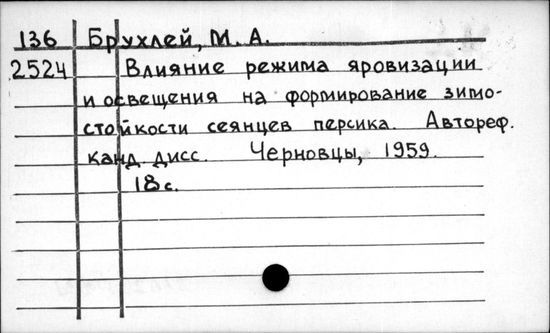 136 Брухлей, М. А.
2524 Влияние режима яровизации
и освещения на формирование зимо-
стойкости сеянцев персика. Автореф.
канд. дисс. Черновцы, 1959.
18 с.